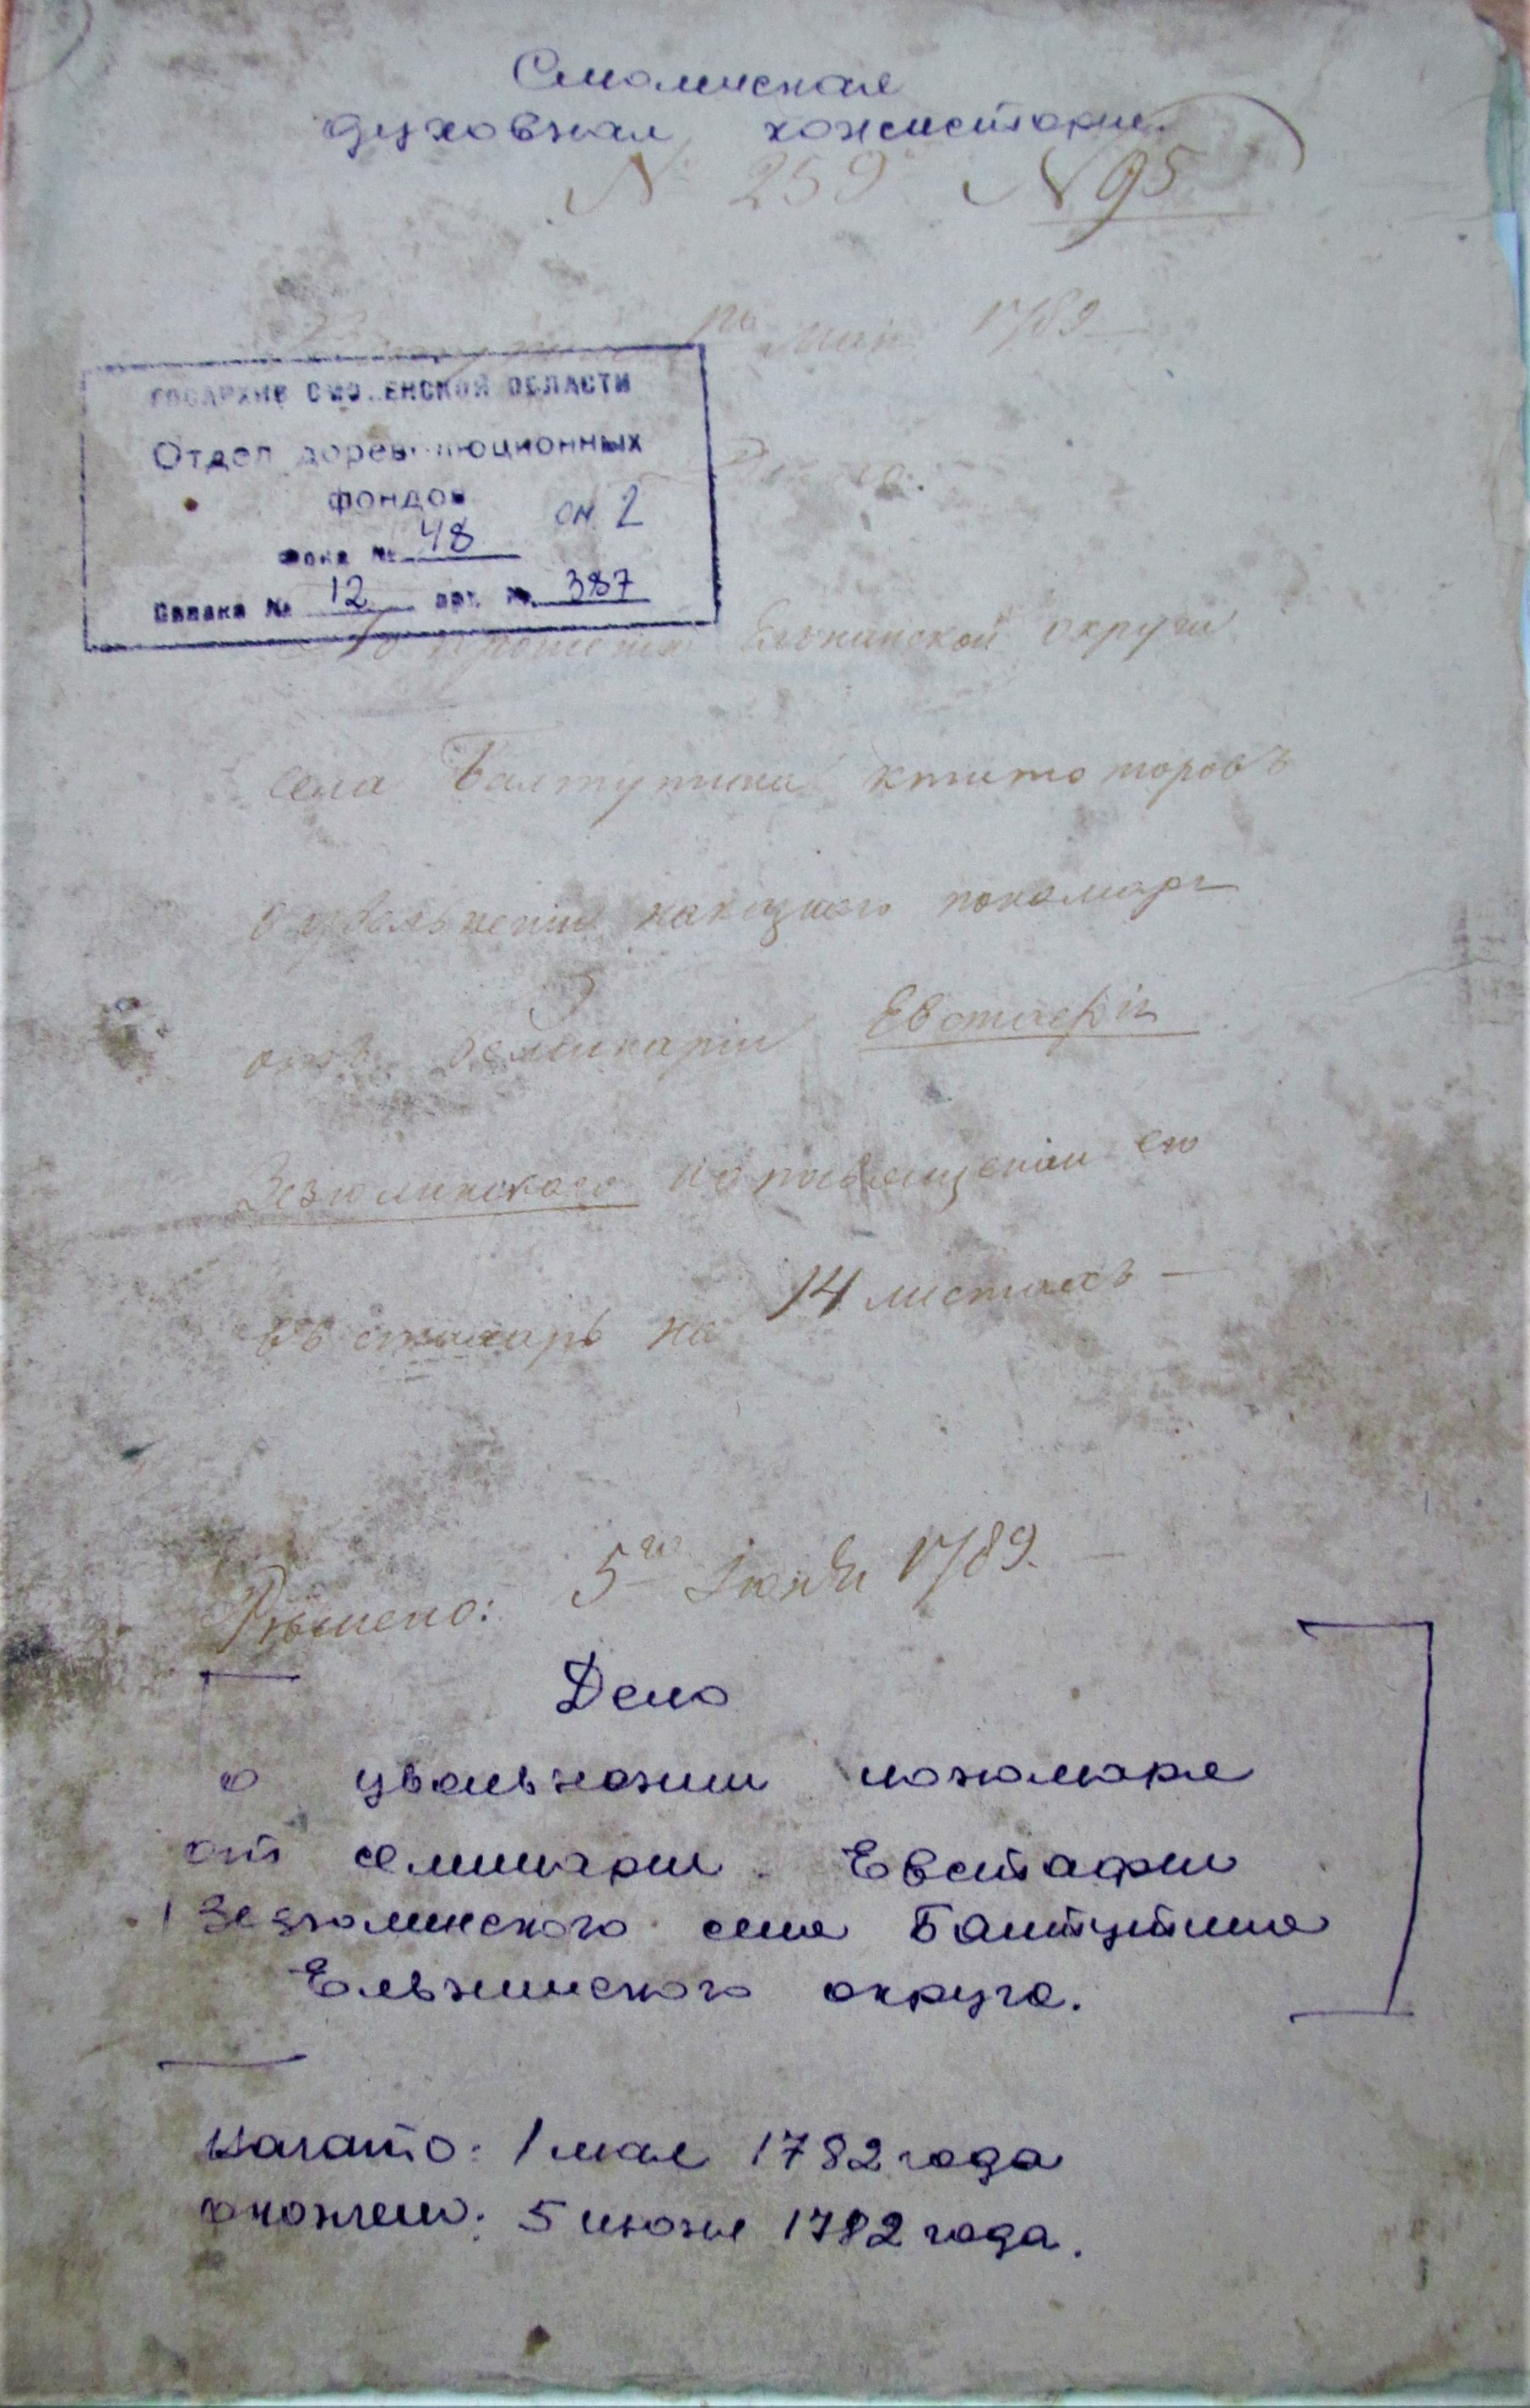 Смоленская
духовная консистория.
№ 259 № 95
Маія 1789
ГОСАРХИВ СМОЛЕНСКОЙ ОБЛАСТИ
Отдел дореволюционных
фондов оп 2
Фонд № 48
Связка № 12 арх. № 387
По прошенію Ельнинской округи
села Балтутина ктиторовъ
о увольненіи находнаго пономаря
отъ семинаріи Евстафія
Зезюлинскаго и о посвященіи его
въ стихарь на 14 листахъ
Рѣшено: 5го Іюня 1789.
Дело
о увольнении пономаря
от семинарии Евстафия
Зезюлинского села Балтутина
Ельнинского округа.
Начато: 1 мая 1782 года
окончено: 5 июня 1782 года.